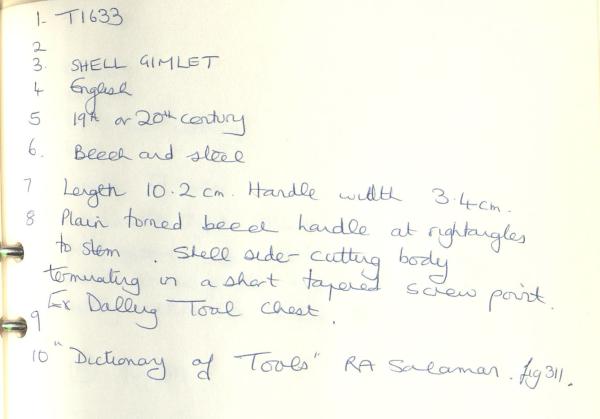 1. T1633
2
3. SHELL GIMLET
4 English
5 19th or 20th century
6. Beech and steel
7 Length 10.2 cm. Handle width 3.4cm.
8 Plain turned beech handle at rightangles
to stem. Shell side-cutting body
terminating in a short tapered screw point.
9 Ex Dalling Tool Chest.
10 "Dictionary of Tools" RA Salaman. fig 311.